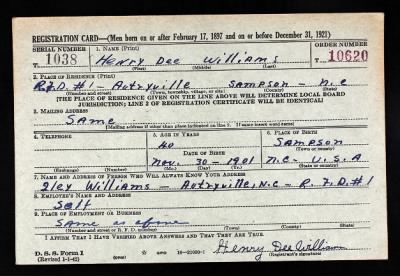 REGISTRATION CARD—(Men born on or after February 17, 1897 and on or before December 31, 1921)
SERIAL NUMBER
1. NAME (Print)
ORDER NUMBER
1038
Henry Dee Williams
10620
(First) (Middle) (Last)
2. PLACE OF RESIDENCE (Print)
R.F.D. #1 Autryville Sampson N.C
(Number and street) (Town, township, village, or city) (County) (State)
[THE PLACE OF RESIDENCE GIVEN ON THE LINE ABOVE WILL DETERMINE LOCAL BOARD
JURISDICTION; LINE 2 OF REGISTRATION CERTIFICATE WILL BE IDENTICAL]
3. MAILING ADDRESS
Same
[Mailing address if other than place indicated on line 2. If same insert word same]
4. TELEPHONE
5. AGE IN YEARS
6. PLACE OF BIRTH
40
Sampson
DATE OF BIRTH
(Town or county)
Nov. 30-1901
N.C. U.S.A
(Exchange) (Number)
(Mo.) (Day) (Yr.)
(State or country)
7. NAME AND ADDRESS OF PERSON WHO WILL ALWAYS KNOW YOUR ADDRESS
Williams — Autryville, N.C — R.F.D. #1
8. EMPLOYER'S NAME AND ADDRESS
Self
9. PLACE OF EMPLOYMENT OR BUSINESS
Same as above
(Number and street or R. F. D. number) (Town) (County) (State)
I AFFIRM THAT I HAVE VERIFIED ABOVE ANSWERS AND THAT THEY ARE TRUE.
Henry Dee William
D. S. S. Form 1
(Revised 1-1-42) (over)
(Registrant's signature)